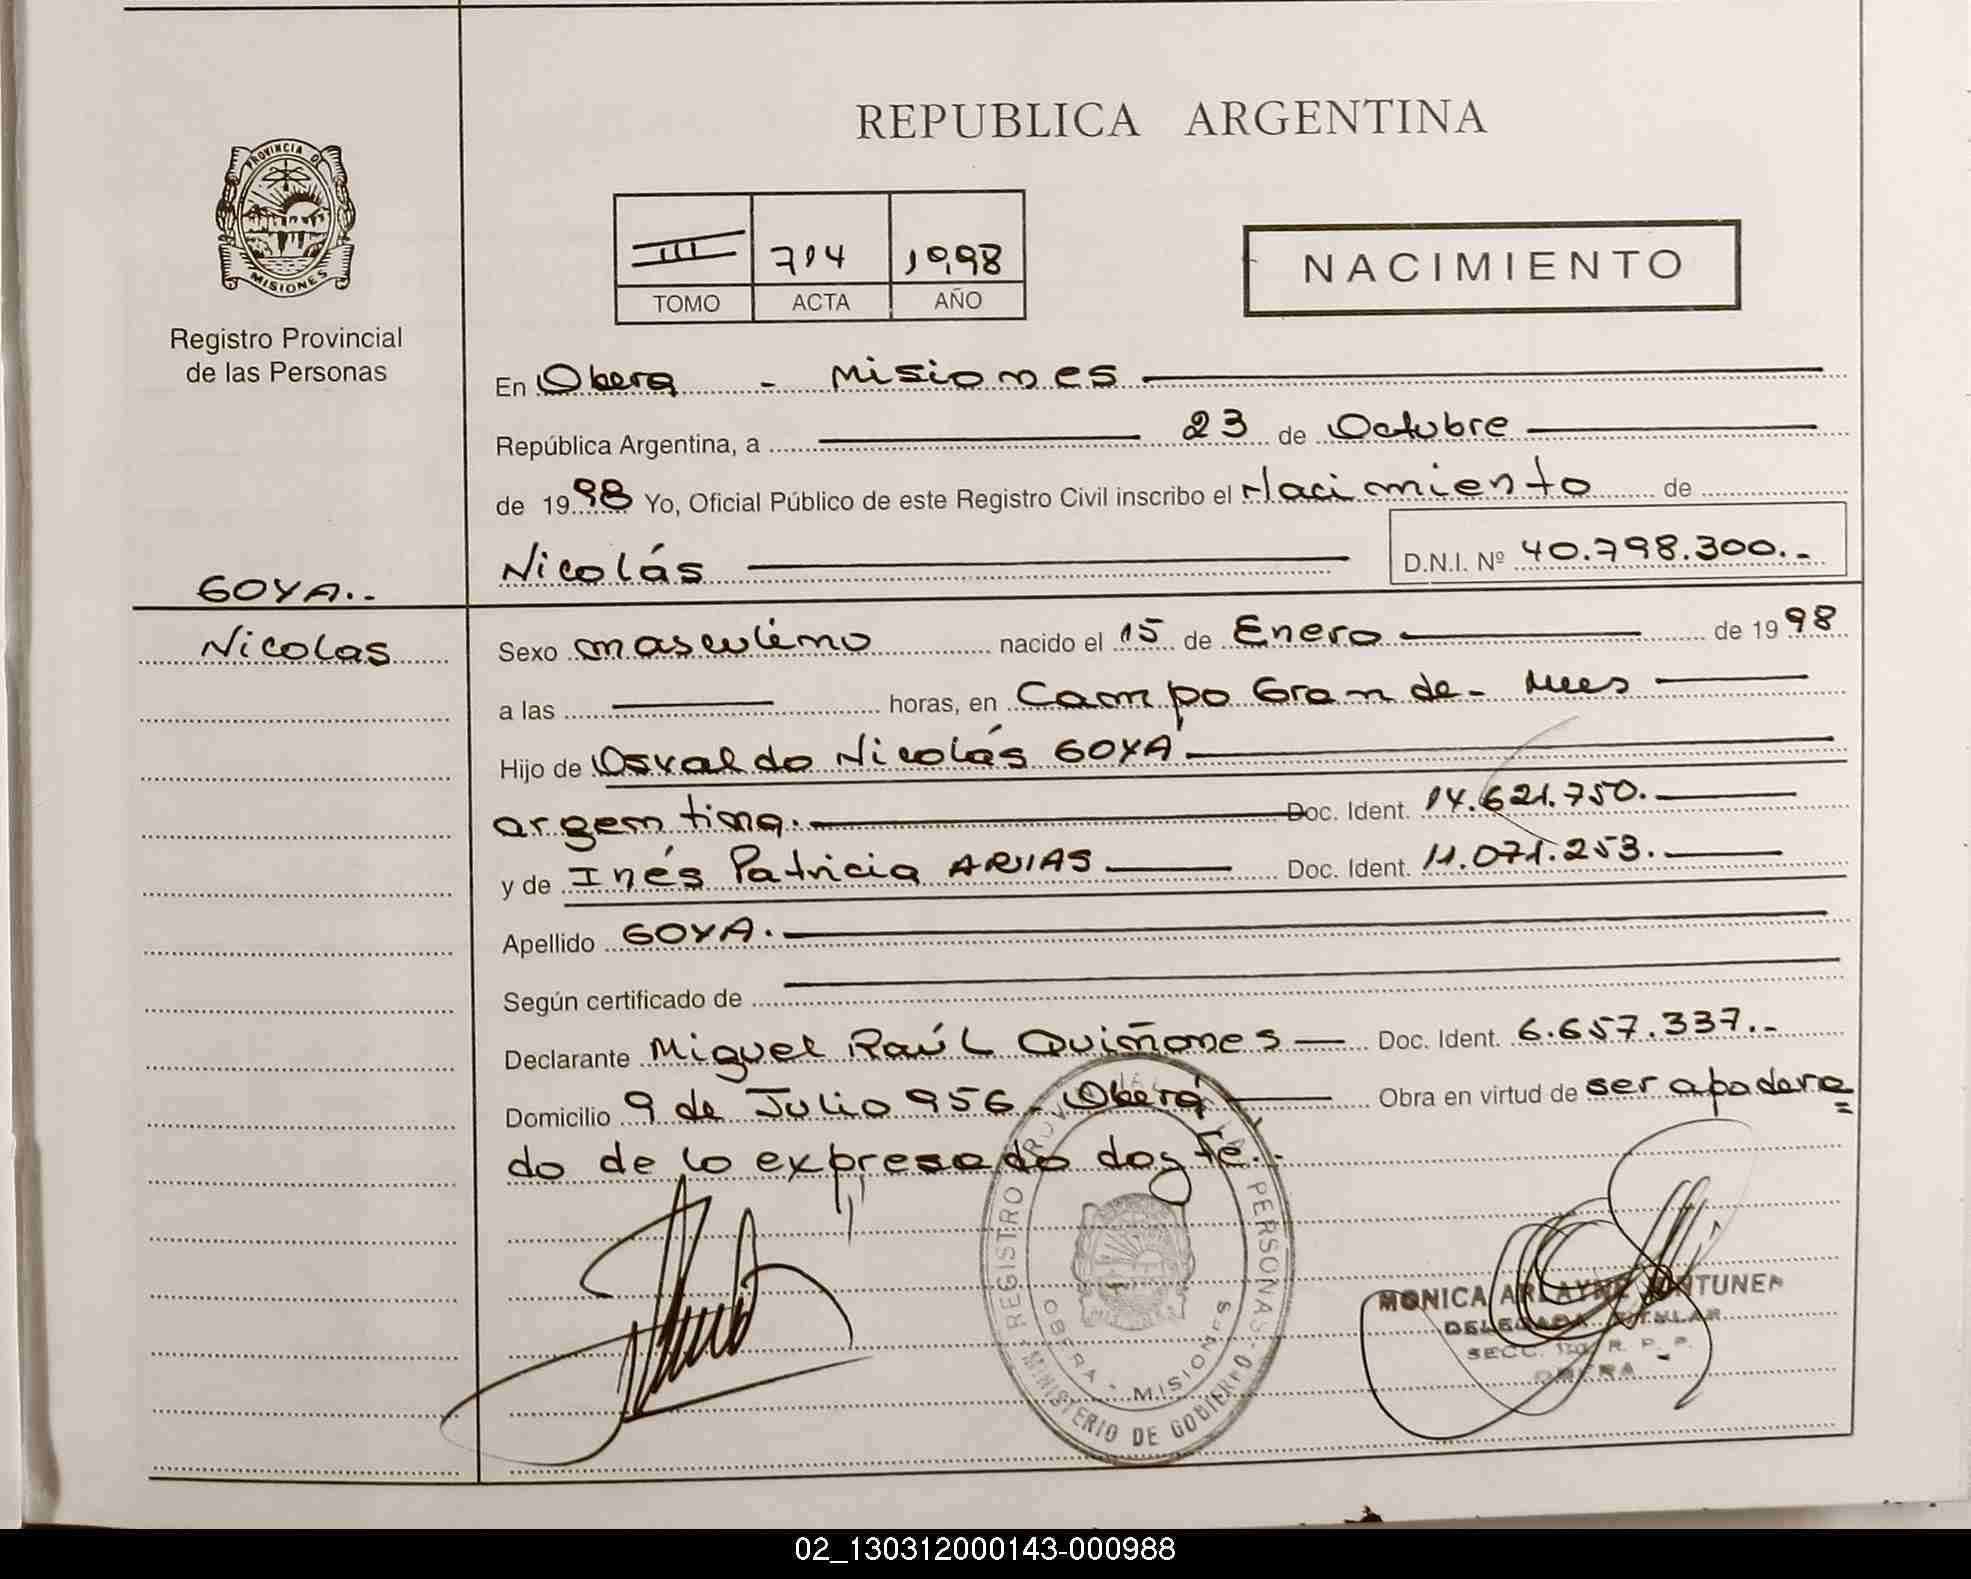 REPUBLICA ARGENTINA
PROVINCIA DE
MISIONES
Registro Provincial
de las Personas
III 714 1998
TOMO ACTA AÑO
NACIMIENTO
En Obera - Misiones
República Argentina, a 23 de Octubre
de 1998 Yo, Oficial Público de este Registro Civil inscribo el Nacimiento de
Nicolás D.N.I. Nº 40.798.300.-
GOYA..
Nicolas
Sexo masculino nacido el 15 de Enero de 1998
a las horas, en Campo Grande - Mnes
Hijo de Osvaldo Nicolás GOYA
argentina. Doc. Ident. 14.621.750.
y de Inés Patricia ARIAS Doc. Ident. 11.071.253.
Apellido GOYA.
Según certificado de
Declarante Miguel Raúl Quiñones Doc. Ident. 6.657.337.-
Domicilio 9 de Julio 956 - Oberá Obra en virtud de ser apodera
do de lo expresado doy fe.
REGISTRO PERSONAS
OBERA - MISIONES
MINISTERIO DE GOBIERNO
MONICA
DELEGADA TITULAR
SECC. R. P. P.
OBERA
02_130312000143-000988